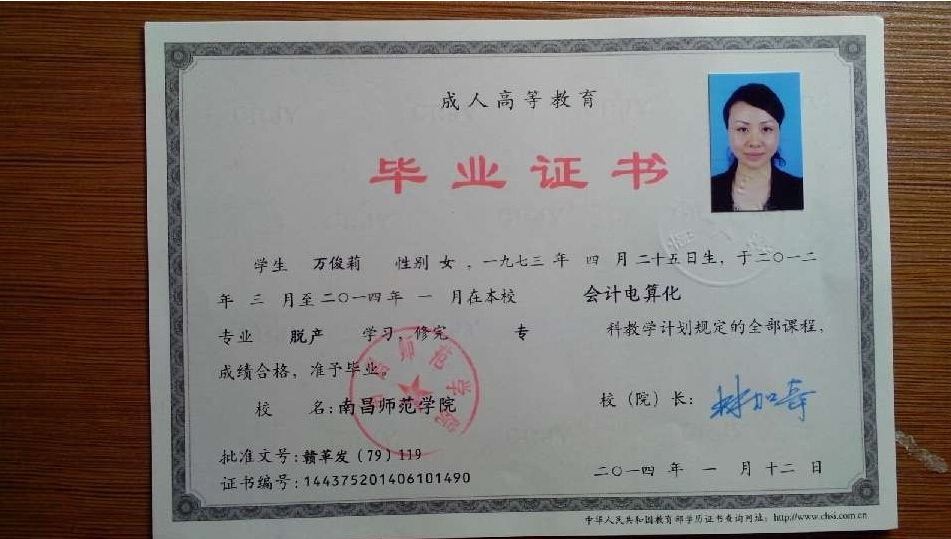 成人高等教育
毕业证书
学生 万俊莉 性别 女 ，一九七三 年 四 月 二十五日生，于二〇一二
年 三 月至二〇一四年 一 月在本校 会计电算化
专业 脱产 学习，修完 专 科教学计划规定的全部课程，
成绩合格，准予毕业。
校 名：南昌师范学院 校（院）长：
批准文号：赣革发（79）119
证书编号：144375201406101490 二〇一四 年 一 月 十二 日
中华人民共和国教育部学历证书查询网址：http://www.chsi.com.cn